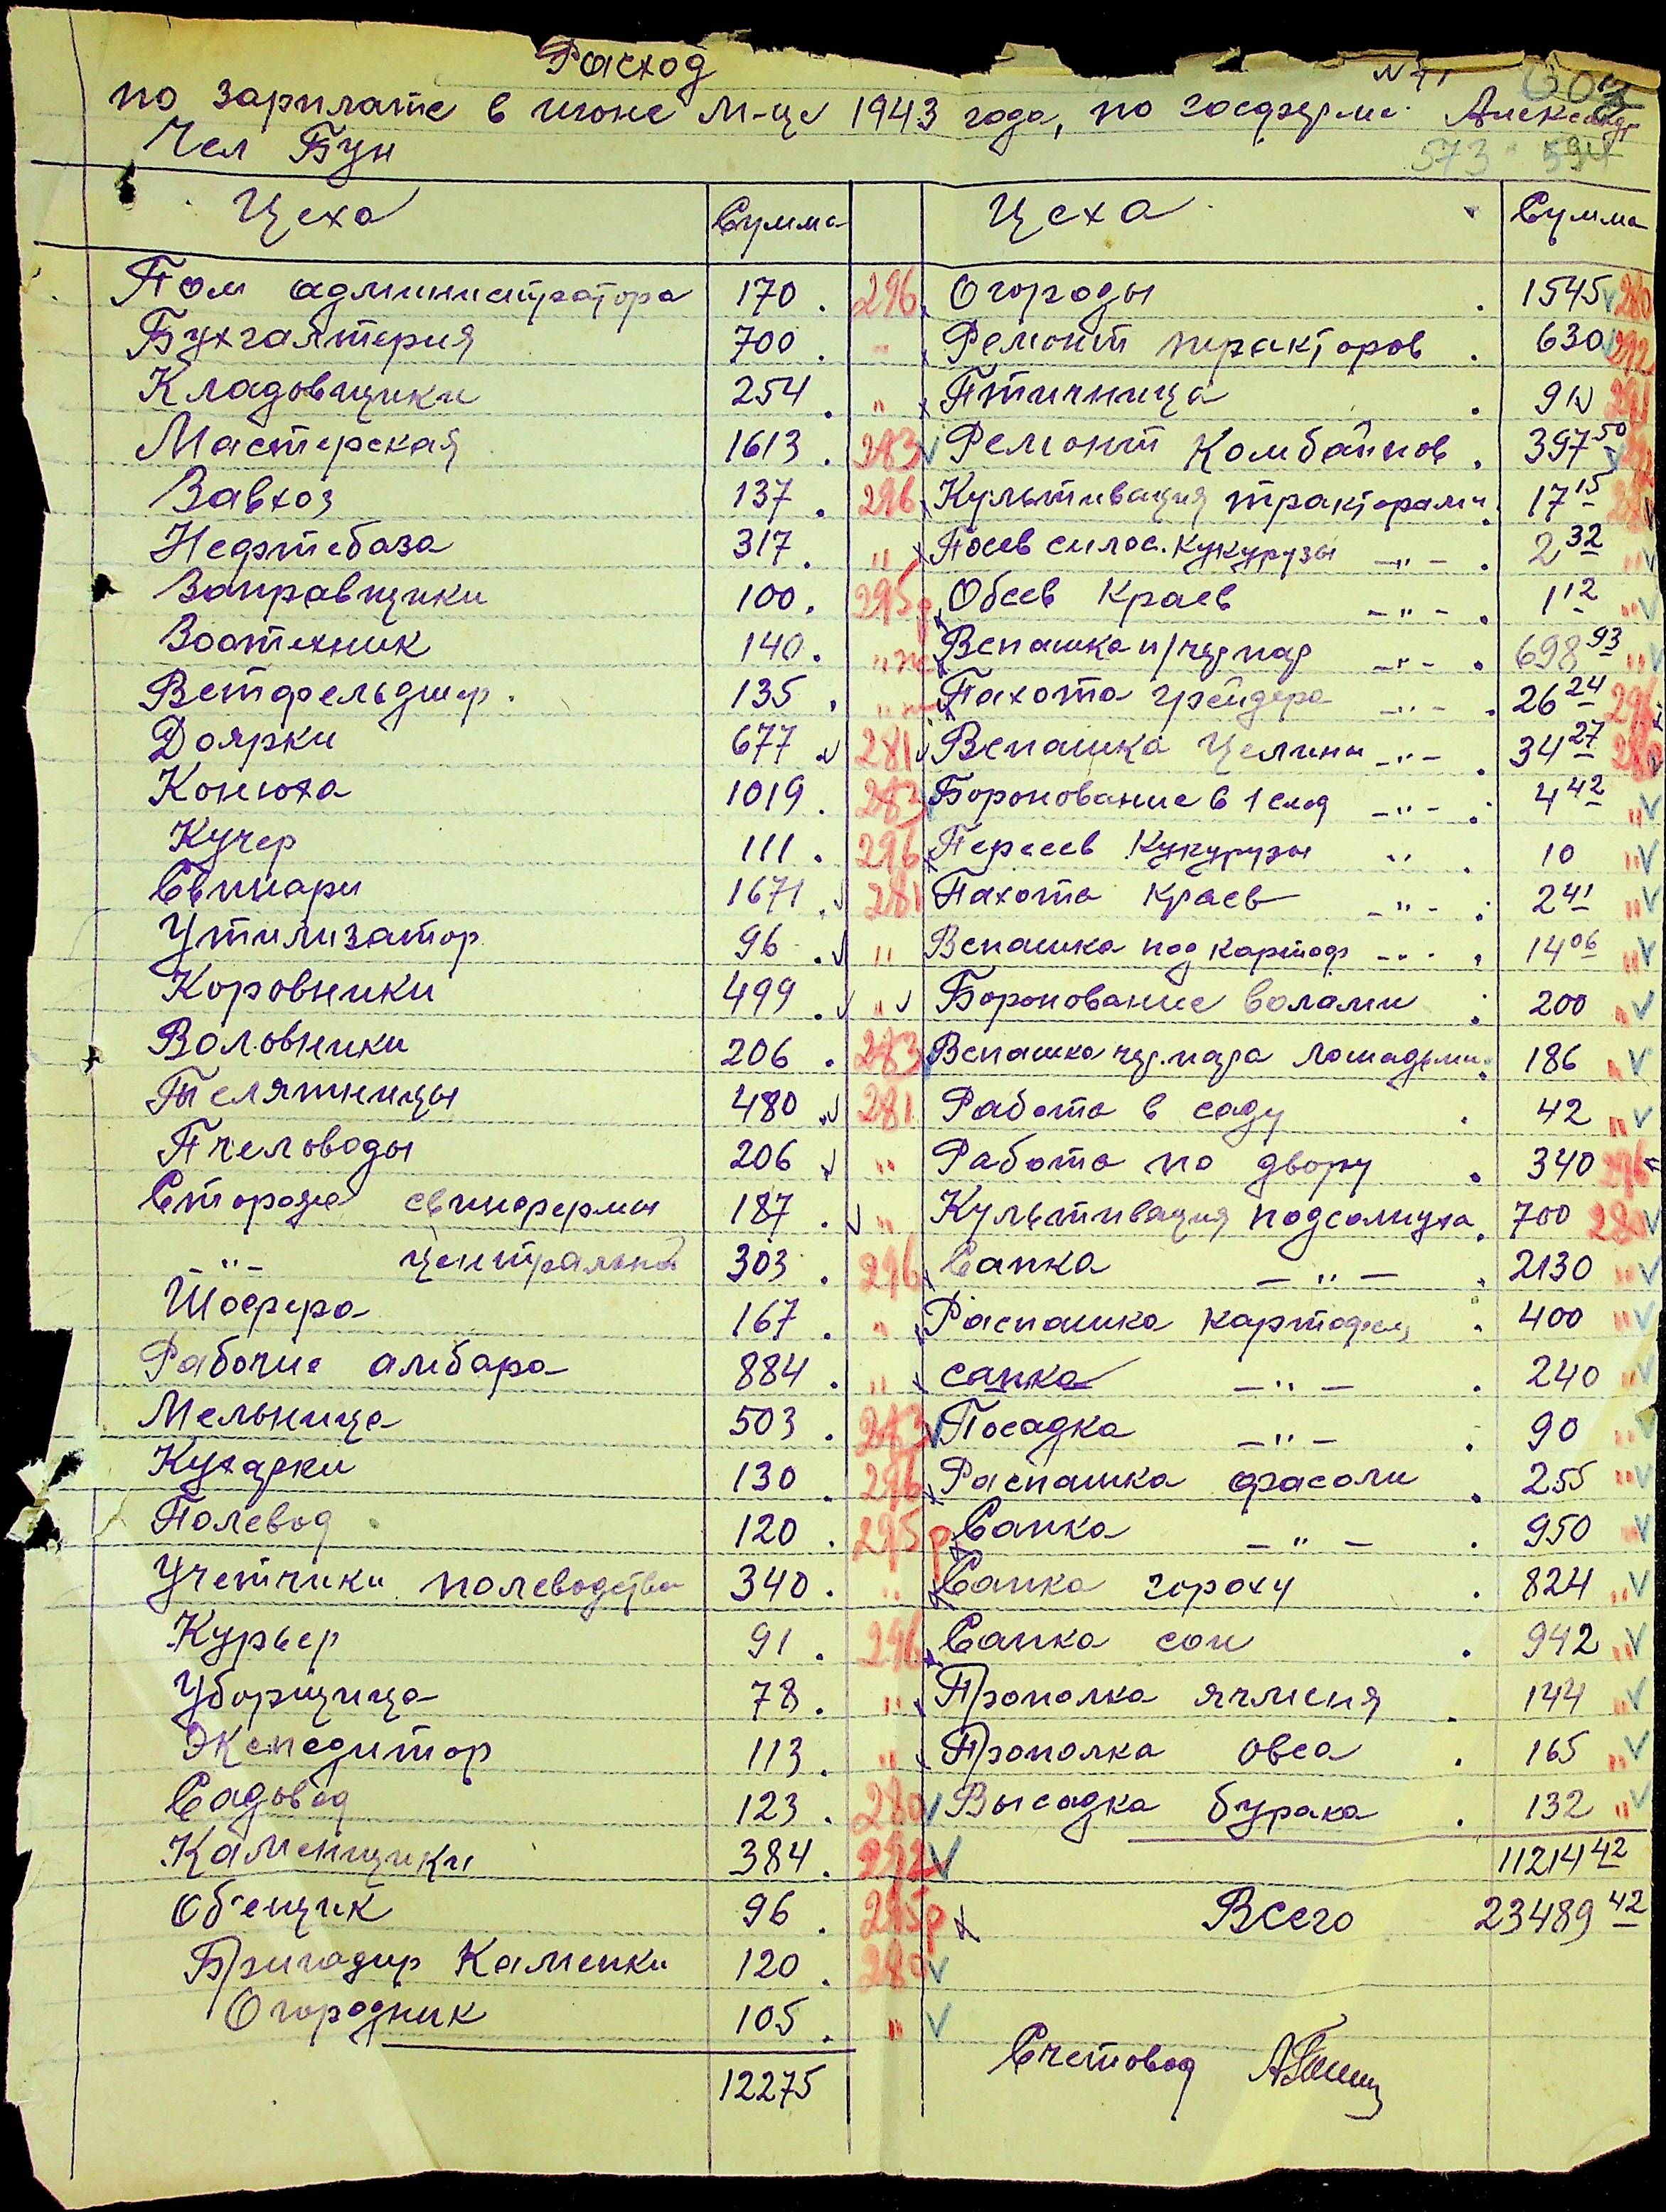 Расход
N 71
по зарплате в июне м-це 1943 года, по госферме Александр
Чел Бун
573 594
Цеха Сумма Цеха Сумма
Пом администратора 170. 296 Огороды 1545 280
Бухгалтерия 700. " Ремонт тракторов. 630 292
Кладовщики 254. " Птичница. 91 291
Мастерская 1613. 283 Ремонт Комбайнов. 397 50
Завхоз 137. 296 Культивация тракторами. 17 15
Нефтебаза 317. " Посев силос. кукурузы —"—. 2 32 "
Заправщики 100. 295р Обсев Краев —"—. 1 12 "
Зоотехник 140. " Вспашка п/чер пар —"—. 698 93 "
Ветфельдшер. 135. " Пахота грейдера —"—. 26 24 296
Доярки 677 281 Вспашка Целины —"—. 34 27 280
Конюха 1019. 283 Боронование в 1 след —"—. 4 42 "
Кучер 111. 296 Пересев Кукурузы ". 10 "
Свинари 1671. 281 Пахота Краев —"—. 2 41 "
Утилизатор 96. " Вспашка под картоф —"—. 14 06 "
Коровники 499. " Боронование волами. 200 "
Воловники 206. 283 Вспашка чер. пара лошадьми. 186 "
Телятницы 480 281 Работа в саду. 42 "
Пчеловоды 206 " Работа по двору. 340 296
Сторожа свинофермы 187. " Культивация подсолнуха. 700 280
—"— Центральной 303. 296 Сапка —"—. 2130 "
Шофера 167. " Распашка картофеля. 400 "
Рабочие амбара 884. " сапка —"—. 240 "
Мельница 503. 283 Посадка —"—. 90 "
Кухарки 130. 296 Распашка фасоли. 255 "
Полевод 120. 295р Сапка —"—. 950 "
Учетчики полеводства 340. " Сапка гороху. 824 "
Курьер 91. 296 Сапка сои. 942 "
Уборщица 78. " Прополка ячменя. 144 "
Экспедитор 113. " Прополка овса. 165 "
Садовод 123. 280 Высадка бурака. 132 "
Каменщики 384. 292 11214 42
Об'ещик 96. 295р Всего 23489 42
Бригадир Каменки 120. 280
Огородник 105. "
Счетовод
12275